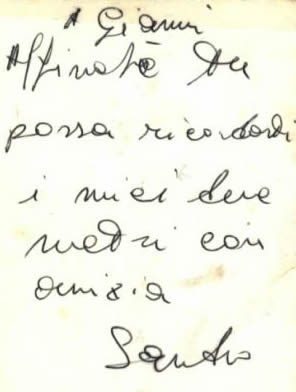 A Gianni
Affinchè tu
possa ricordarti
i miei due
metri con
amicizia
Sandro